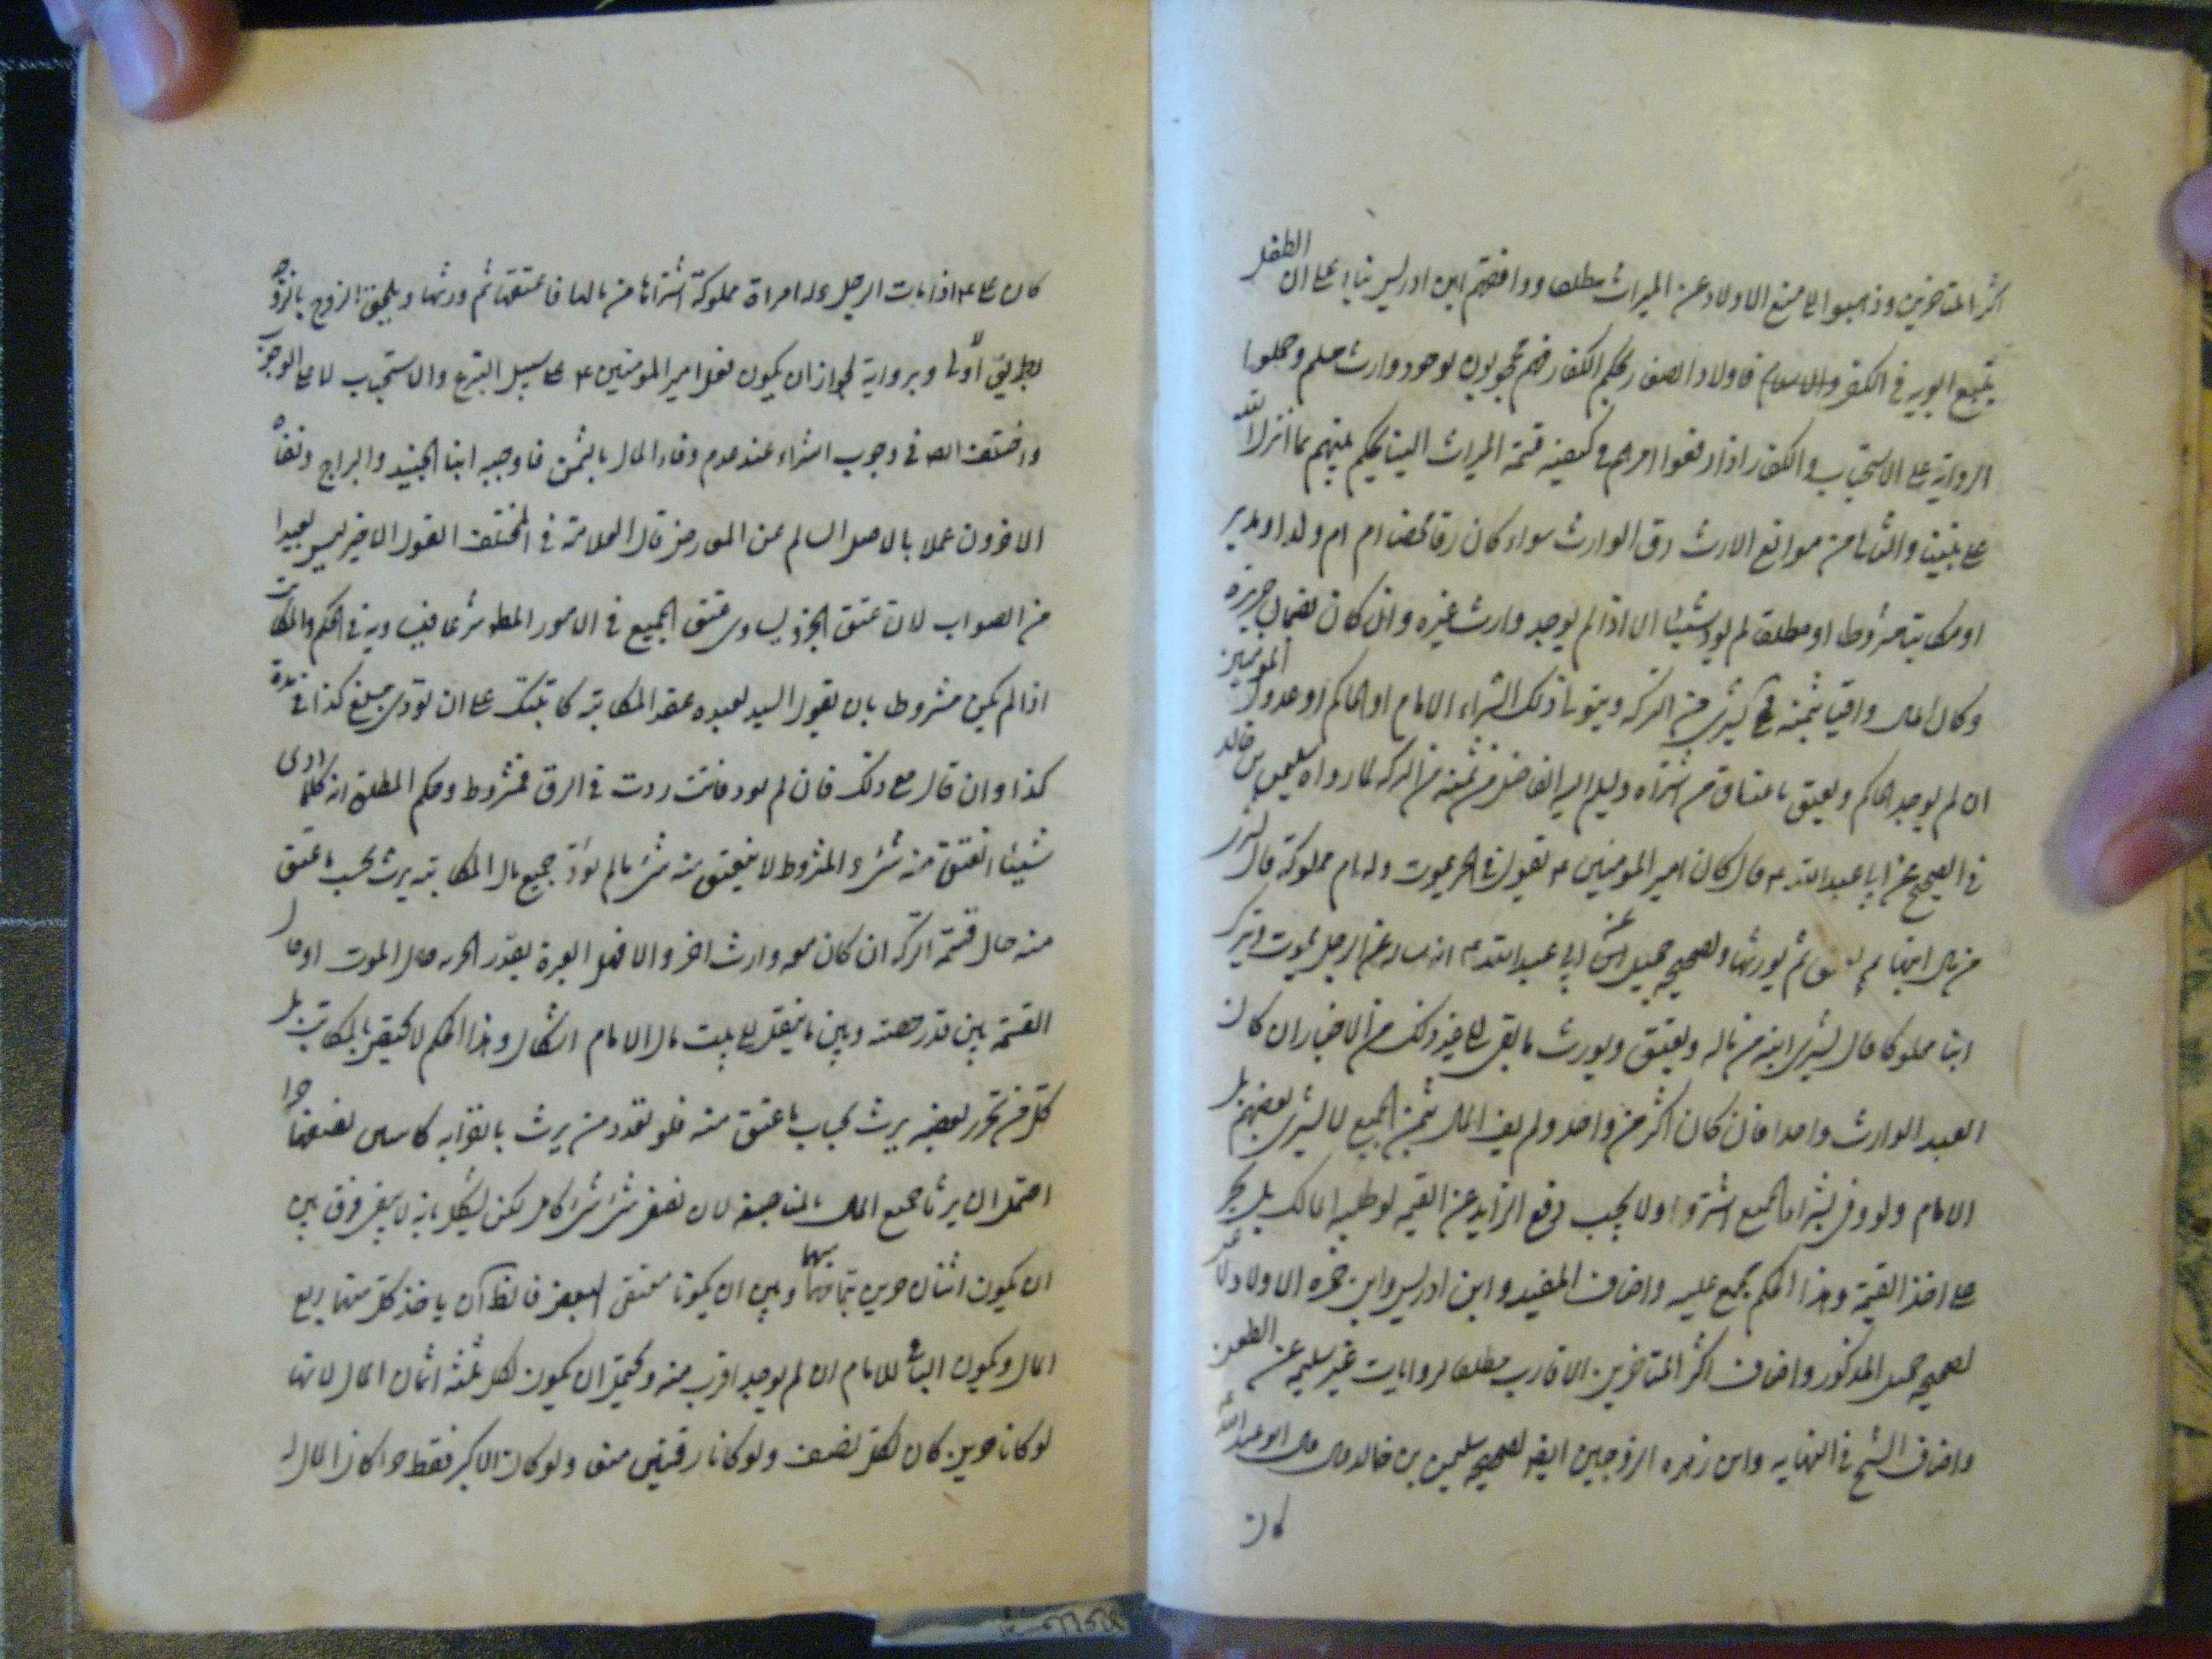 اكثر المتاخرين وذهبوا الى منع الاولاد عن الميراث مطلقا ووافقهم ابن ادريس بناء على ان الطفل
يتبع ابويه في الكفر والاسلام فاولاد الصغار بحكم الكفار فهم محجوبون بوجود وارث مسلم وحملوا
الرواية على الاستحباب والكفار اذا رفعوا امرهم في كيفية قسمة الميراث الينا نحكم بينهم بما انزل الله
على نبينا والثاني من موانع الارث رق الوارث سواء كان رقا محضا ام ام ولد او مدبر
او مكاتبا مشروطا او مطلقا لم يود شيئا الا اذا لم يوجد وارث غيره وان كان بضمان جريرة
وكان المال وافيا بثمنه فح يشترى من التركة ويتولى ذلك الشراء الامام او الحاكم او عدول المؤمنين
ان لم يوجد الحاكم ويعتق باعتاق من اشتراه ويسلم اليه الفاضل من ثمنه من التركة لما رواه سليمن بن خالد
في الصحيح عن ابي عبد الله ع قال كان امير المومنين ع يقول في الحر يموت وله ام مملوكة قال تشترى
من مال ابنها ثم تعتق ثم يورثها ولصحيح جميل عن ابي عبد الله ع انه ساله عن الرجل يموت ويترك
ابنا مملوكا قال يشترى ابنه من ماله ويعتق ويورث ما بقى الى غير ذلك من الاخبار ان كان
العبد الوارث واحدا فان كان اكثر من واحد ولم يف المال بثمن الجميع لا يشترى بعضهم بل
الامام ولو وفى بشراء الجميع اشتروا ولا يجب دفع الزايد عن القيمة لو طلبه المالك بل يجبر
على اخذ القيمة وهذا الحكم مجمع عليه واضاف المفيد وابن ادريس وابن حمزه الاولاد
لصحيح جميل المذكور واضاف اكثر المتاخرين الاقارب مطلقا لروايات غير سليمة عن الطعن
واضاف الشيخ في النهايه وابن زهره الزوجين ايضا لصحيح سليمن بن خالد قال قال ابو عبد الله ع
كان
كان على ع اذا مات الرجل وله امراة مملوكة اشتراها من ماله فاعتقها ثم ورثها ويلحق الزوج بالزوجه
بطريق اولى وبرواية لجواز ان يكون فعل امير المومنين ع على سبيل التبرع والاستحباب لا على الوجوب
واختلف الاصحاب في وجوب الشراء عند عدم وفاء المال بالثمن فاوجبه ابنا الجنيد والبراج ونفاه
الاخرون عملا بالاصل السالم عن المعارض قال العلامة في المختلف القول الاخير ليس بعيدا
من الصواب لان عتق الجزء يساوي عتق الجميع في الامور المطلوبة شرعا فيساويه في الحكم والمكاتب
اذا لم يكن مشروطا بان يقول السيد لعبده عقد المكاتبة كاتبتك على ان تؤدى مبلغ كذا في مدة
كذا وان قال مع ذلك فان لم تود فانت رددت في الرق فمشروط وحكم المطلق انه كلما ادى
شيئا انعتق منه شىء والمشروط لا ينعتق منه شىء ما لم يؤد جميع مال المكاتبة يرث بحسب ما عتق
منه حال قسمة التركه ان كان معه وارث اخر والا فهل العبرة بقدر الحرية حال الموت او حال
القسمة بين قدر حصته وبين ما ينتقل الى بيت مال الامام اشكال وهذا الحكم لا يختص بالمكاتب بل
كل من تحرر بعضه يرث بحساب ما عتق منه فلو تعدد من يرث بالقرابه كابنين نصفهما حر
احتمل ان يرثا جميع المال بالمناصفة لان نصفى شىء شىء كامل لكن يشكل بانه لا يبقى فرق بين
ان يكون ابنان حرين بتمامهما وبين ان يكونا معتقى البعض فالظاهر ان ياخذ كل منهما ربع
المال ويكون الباقى للامام ان لم يوجد اقرب منه ويحتمل ان يكون لكل ثلثة اثمان المال لانهما
لو كانا حرين كان لكل نصف ولو كانا رقين منعا ولو كان الاكبر فقط حرا كان المال له